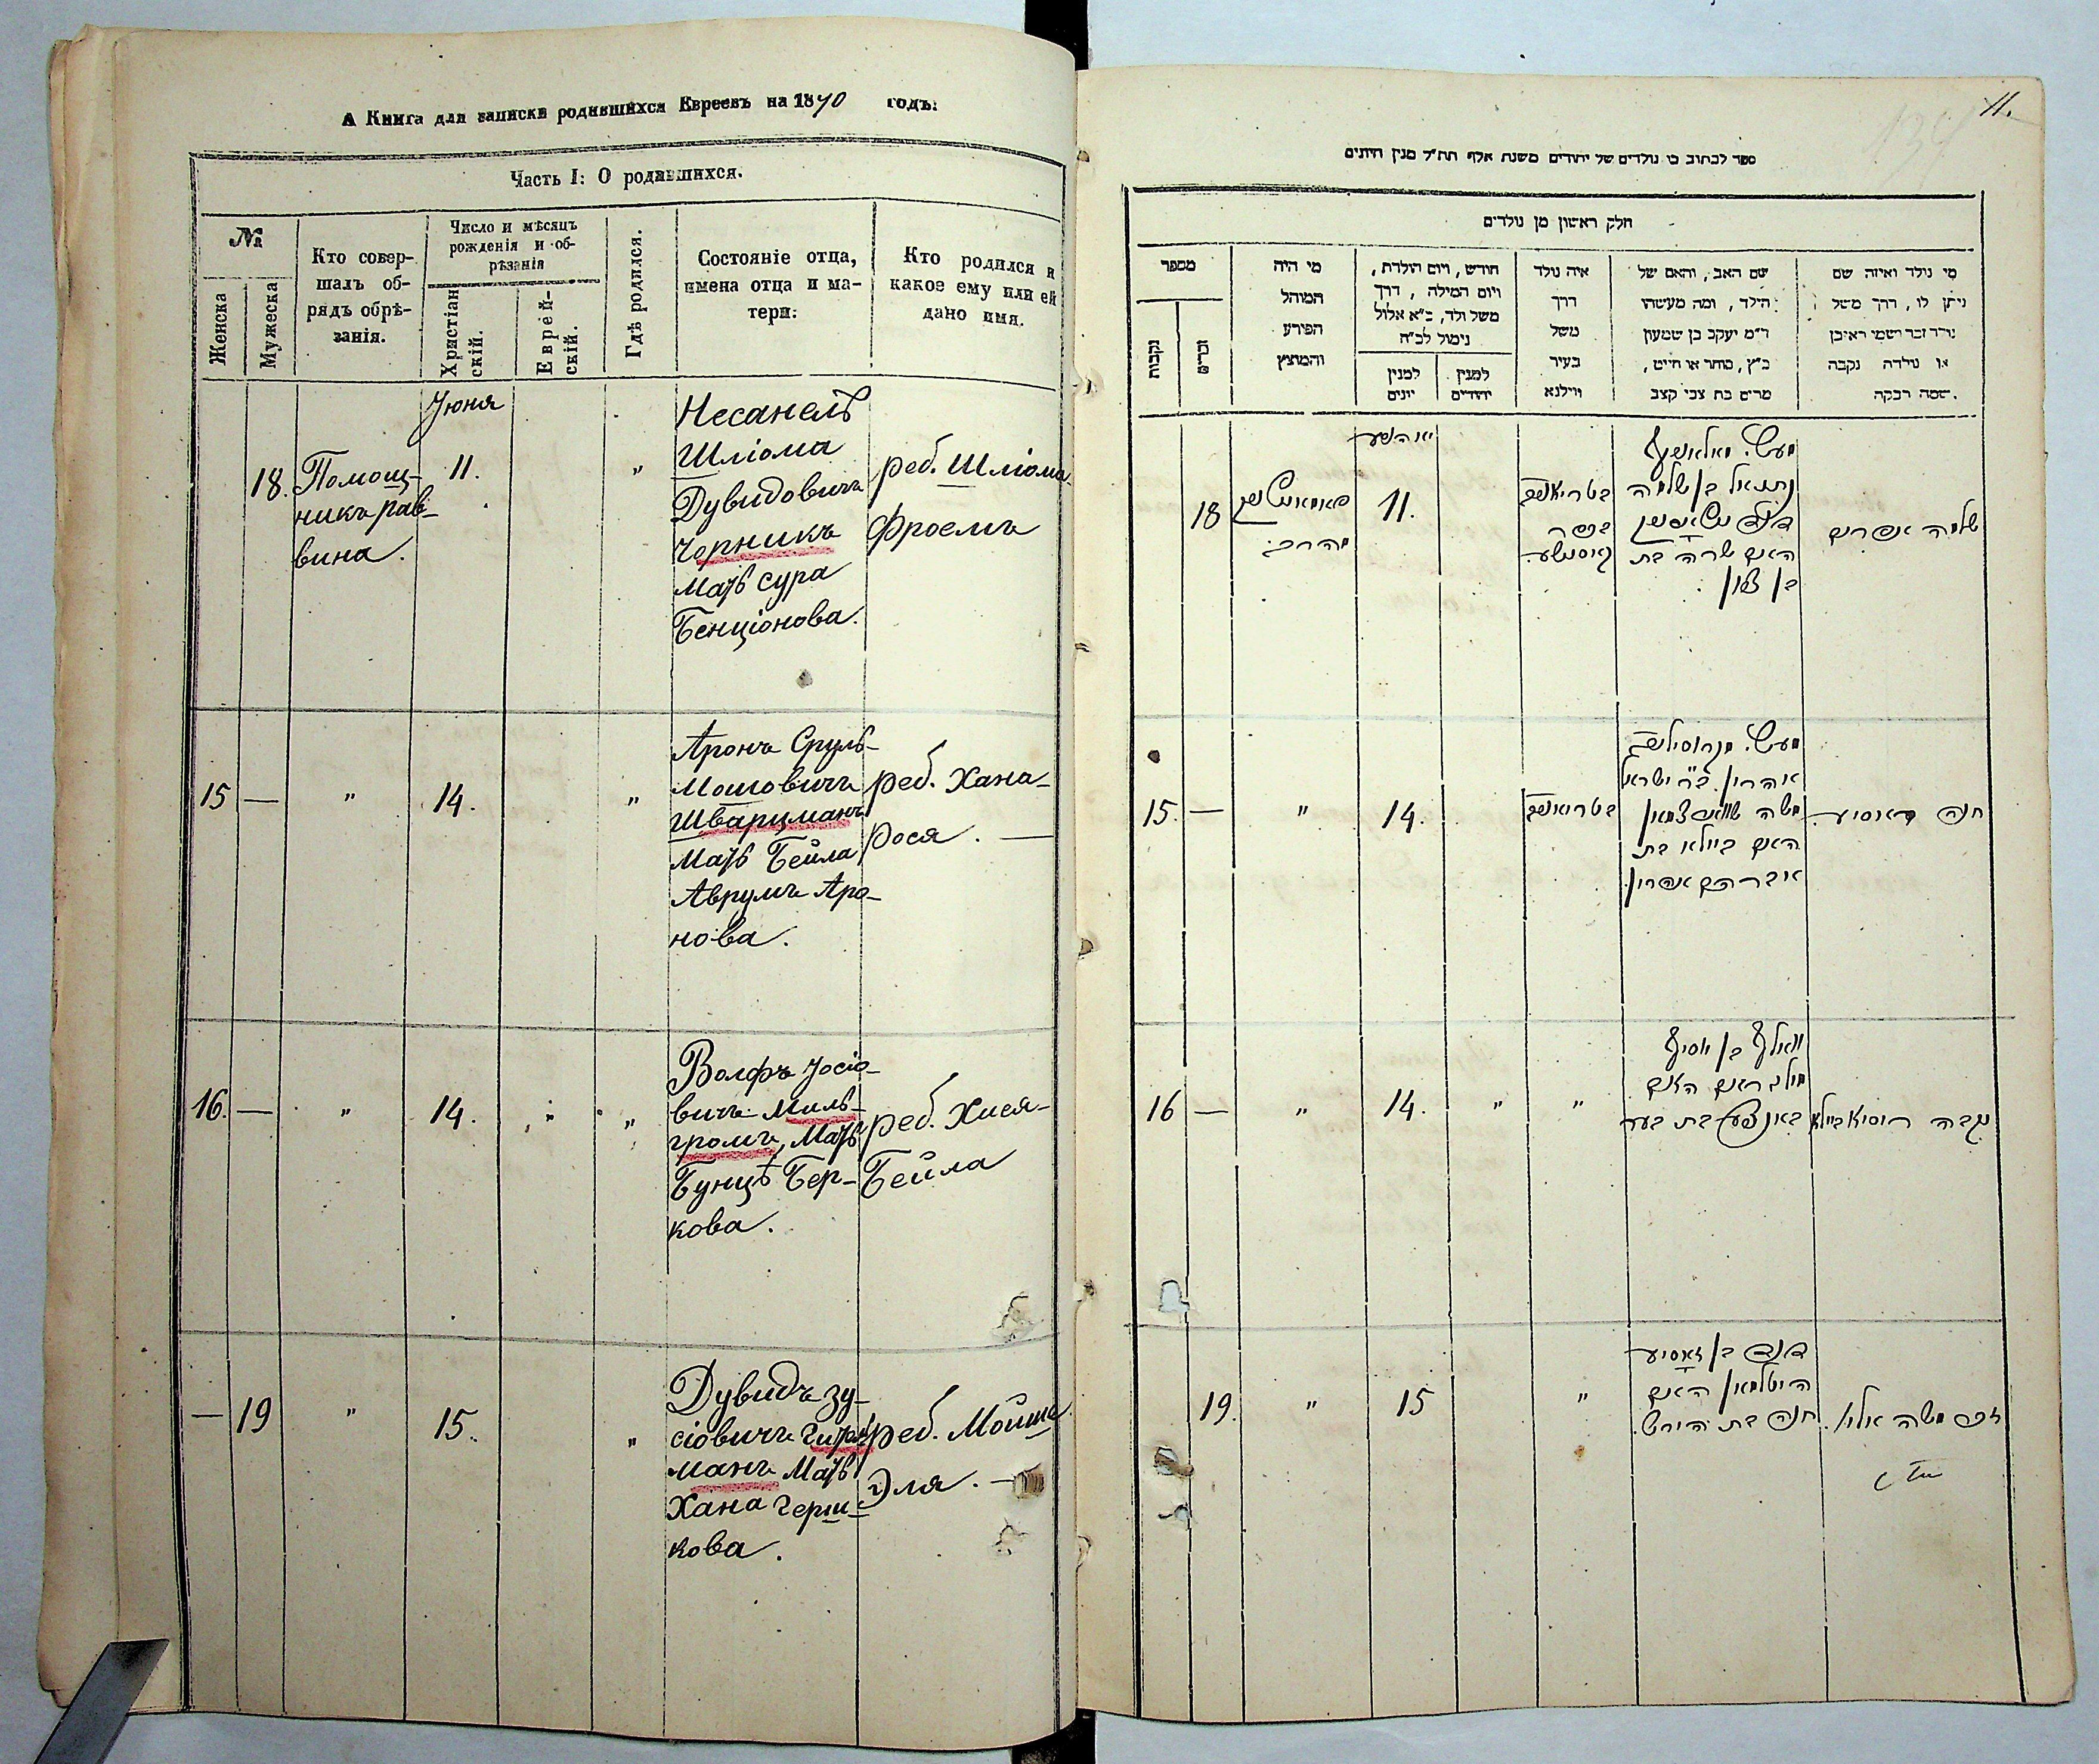 А Книга для записки родившихся Евреевъ на 1870 годъ.
Часть I: О родившихся.
№
Женска
Мужеска
Кто совер-
шалъ об-
рядъ обрѣ-
занія.
Число и мѣсяцъ
рожденія и об-
рѣзанія
Христіан
скій.
Еврей-
скій.
Гдѣ родился.
Состояніе отца,
имена отца и ма-
тери:
Кто родился и
какое ему или ей
дано имя.
Июня
18.
Помощ-
никъ рав-
вина.
11.
"
Несанелъ
Шліома
Дувидовичъ
Черникъ
Мать Сура
Бенціонова.
реб. Шліома
Фроемъ
15 —
"
14.
"
Аронъ Сруль-
Мошовичъ
Шварцманъ
Мать Бейла
Аврумъ Аро-
нова.
реб. Хана-
Рося. —
16. —
"
14.
"
"
Волфъ Іосіо-
вичъ Миль-
громъ, Мать
Бунцѣ Бер-
кова.
реб. Хися-
Бейла
— 19
"
15.
"
Дувидъ Зу-
сіовичъ Гитель-
манъ Мать
Хана Герш-
кова.
реб. Мойше
Эля. —
11.
ספר לכתוב בו נולדים של יהודים משנת אלף תת״ל מנין היונים
חלק ראשון מן נולדים
מספר
נקבות
זכרים
מי היה
המוהל
הפורע
והמוצץ
חודש, ויום הולדת,
ויום המילה, דרך
משל ולד, כ״א אלול
נימול לכ״ח
למנין
יונים
למנין
יהודים
איה נולד
דרך
משל
בעיר
ווילנא
שם האב, והאם של
הילד, ומה מעשהו
ר״מ יעקב בן שמעון
כ״ץ, סוחר או חייט,
מרים בת צבי קצב
מי נולד ואיזה שם
ניתן לו, דרך משל
נולד זכר ושמו ראובן
או נולדה נקבה
שמה רבקה.
18
11.
נתנאל בן שלמה
האם שרה בת
בן ציון
שלמה אפרים
15. —
"
14.
אהרון ב״ר ישראל
משה שווארצמאן
האם ביילא בת
אברהם אהרון
חנה ראסיע.
16 —
"
14.
"
"
וואלף בן יוסיף
מילגראם האם
19.
"
15
"
דוד בן זאסיע
היטלמאן האם
חנה בת הירש.
זכר משה אליי.